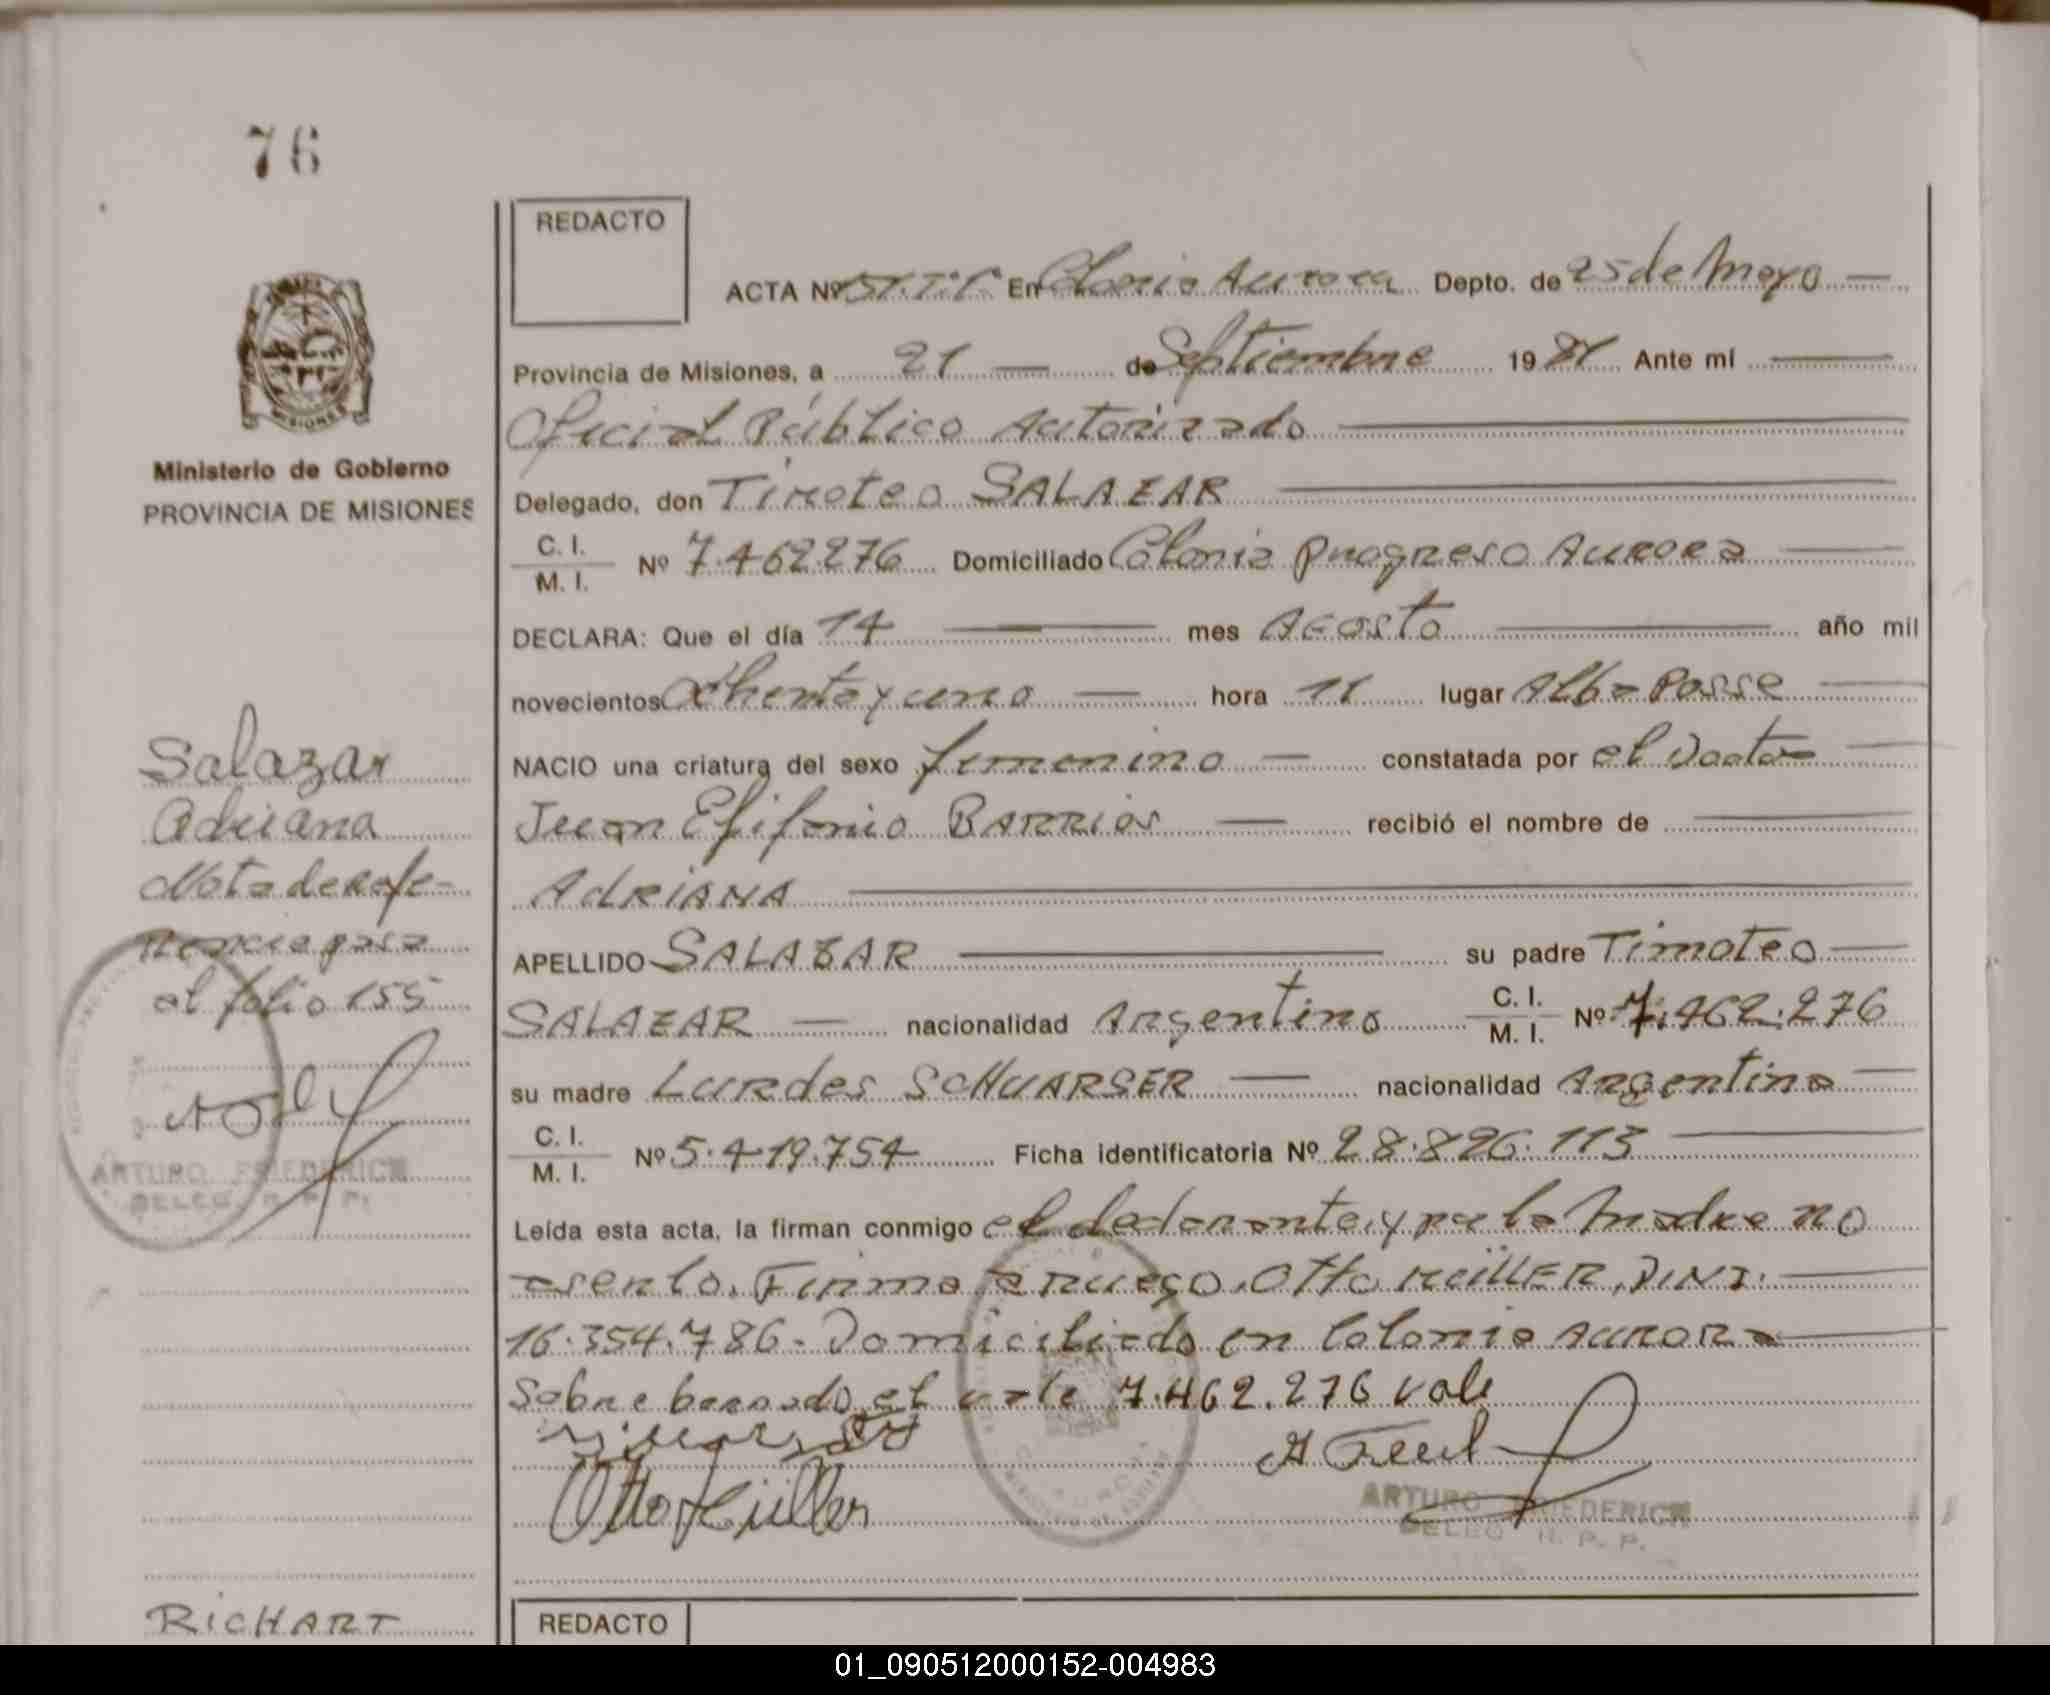 76
REDACTO
ACTA Nº 151.T:1º En Colonia Aurora Depto. de 25 de Mayo
Provincia de Misiones, a 21 de Septiembre 1981 Ante mí
Oficial Público Autorizado
Delegado, don Timoteo SALAZAR
C. I.
M. I. Nº 7.462.276 Domiciliado Colonia Progreso Aurora
DECLARA: Que el día 14 mes Agosto año mil
novecientos Ochenta y uno hora 11 lugar Alba Posse
NACIO una criatura del sexo femenino constatada por el Doctor
Juan Epifanio BARRIOS recibió el nombre de
ADRIANA
APELLIDO SALAZAR su padre Timoteo
SALAZAR nacionalidad Argentino C. I. M. I. Nº 7.462.276
su madre Lurdes SCHUARSER nacionalidad Argentina
C. I.
M. I. Nº 5.419.754 Ficha identificatoria Nº 28.826.113
Leída esta acta, la firman conmigo el declarante, y por la Madre no
aserlo. Firma a ruego. Otto MÜLLER, D.N.I.
16.354.786. Domiciliado en Colonia Aurora
Sobre borrado, el vale 7.462.276 vale
Otto Müller
ARTURO FRIEDERICH
DELEG. R. P. P.
REDACTO
Ministerio de Gobierno
PROVINCIA DE MISIONES
Salazar
Adriana
Nota de refe-
rencia pasa
al folio 155
ARTURO FRIEDERICH
DELEG. R. P. P.
RICHART
01_090512000152-004983